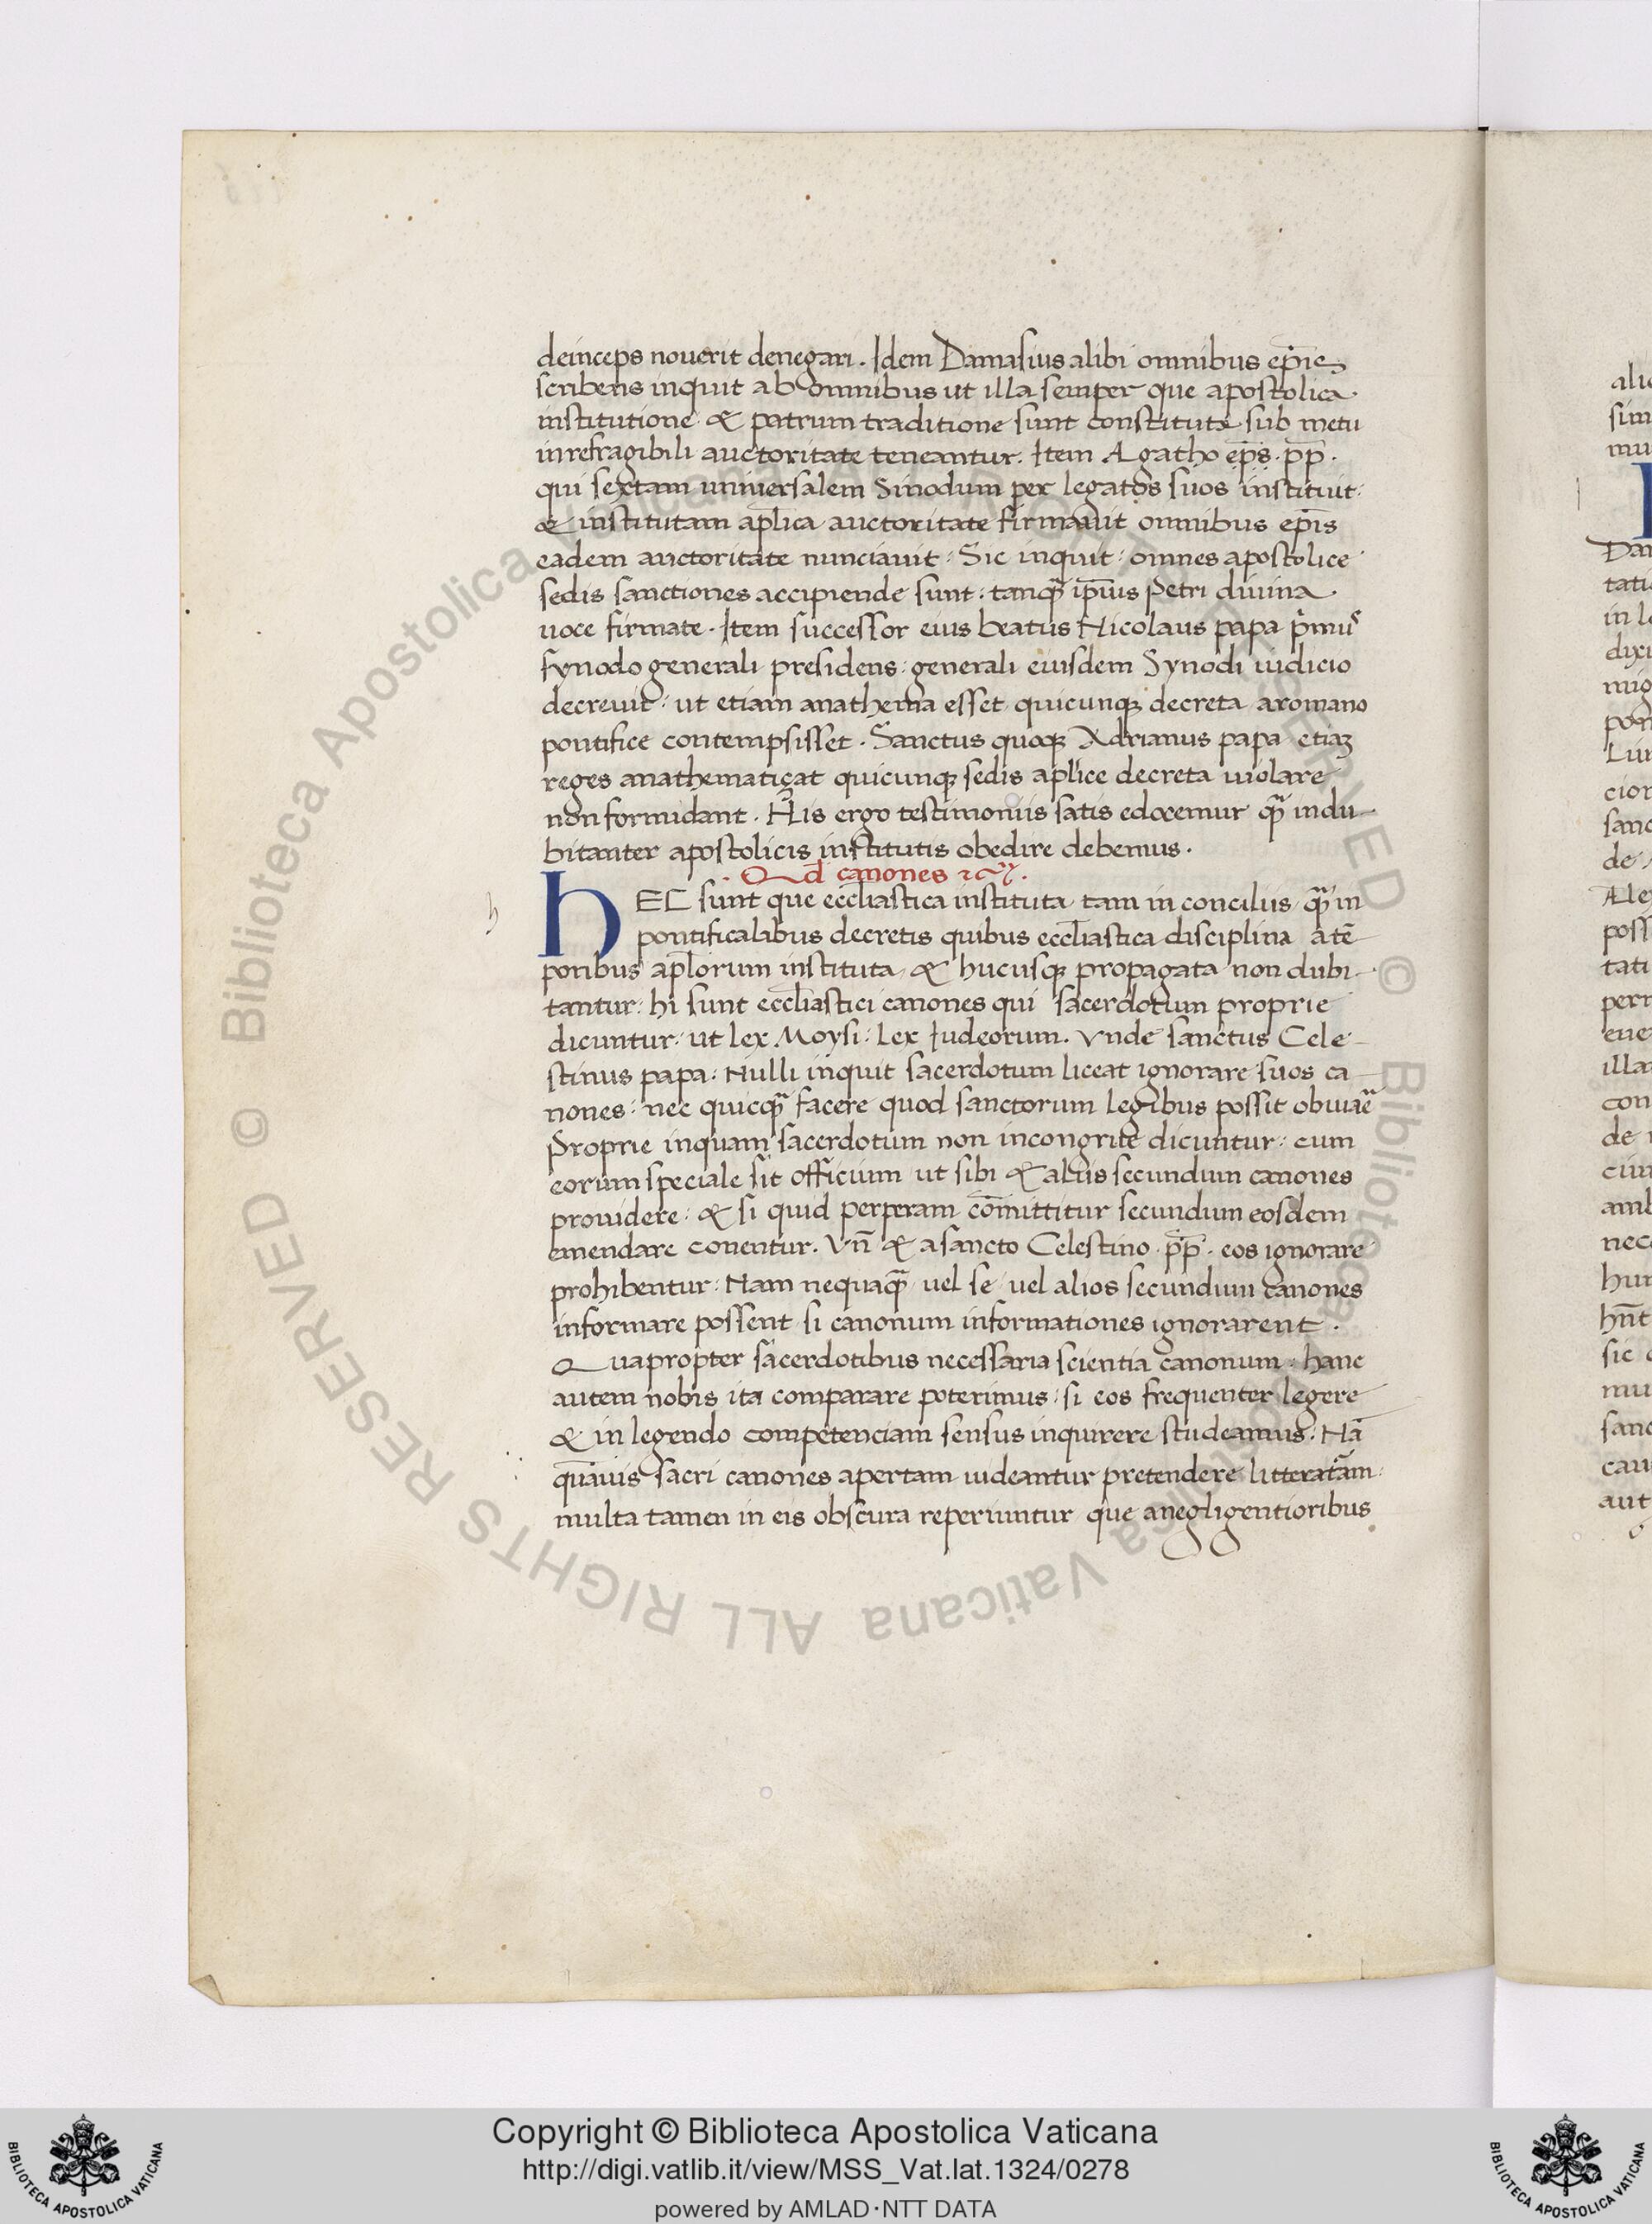 deinceps nouerit denegari. Idem Damasius alibi omnibus ep̄is
scribens inquit ab omnibus ut illa semper que apostolica
institutione & patrum traditione sunt constituta sub metu
inrefragibili auctoritate teneantur. Item Agatho ep̄s. pp̄.
qui sextam uniuersalem Sinodum per legatos suos instituit:
& institutam ap̄lica auctoritate firmauit omnibus ep̄is
eadem auctoritate nunciauit: Sic inquit: omnes apostolice
sedis sanctiones accipiende sunt: tanqꝫ ip̄ius Petri diuina
uoce firmate. Item successor eius beatus Nicolaus papa pͥmuꝰ
synodo generali presidens: generali eiusdem Synodi iudicio
decreuit: ut etiam anathema esset quicunqꝫ decreta aromano
pontifice contempsisset. Sanctus quoqꝫ Adrianus papa etiaꝫ
reges anathematiçat quicunqꝫ sedis apl̄ice decreta uiolare
non formidant. His ergo testimoniis satis edocemur qꝫ indu
bitanter apostolicis institutis obedire debemus.
. Qd̄ canones
HEC sunt que eccl̄iastica instituta tam in conciliis qꝫ in
pontificalibus decretis quibus eccl̄iastica disciplina atē
poribus apl̄orum instituta & hucusqꝫ propagata non dubi
tantur: hi sunt eccl̄iastici canones qui sacerdotum proprie
dicuntur: ut lex Moysi: Lex Iudeorum. Vnde sanctus Cele
stinus papa: Nulli inquit sacerdotum liceat ignorare suos ca
nones: nec quicqꝫ facere quod sanctorum legibus possit obuiaē
Proprie inquam sacerdotum non incongrue dicuntur: cum
eorum speciale sit officium ut sibi & aliis secundum canones
prouidere: & si quid perperam cōmittitur secundum eosdem
emendare conentur. Vn̄ & asancto Celestino. pp̄. eos ignorare
prohibentur: Nam nequaqꝫ uel se uel alios secundum canones
informare possent si canonum informationes ignorarent.
Quapropter sacerdotibus necessaria scientia canonum: hanc
autem nobis ita comparare poterimus: si eos frequenter legere
& in legendo competenciam sensus inquirere studeamus: Nā
quāuis sacri canones apertam uideantur pretendere litteratam:
multa tamen in eis obscura reperiuntur que anegligentioribus
h
alic
sim
mu
Dan
tati
in l
dixi
mig
pon
Lun
cior
sanc
de
Alex
poss
tati
perr
eue
illa
con
de
ciu
amb
nec
hun
hn̄t
sic
mu
sanc
cau
aut
© Biblioteca Apostolica Vaticana ALL RIGHTS RESERVED
© Biblioteca Apostolica Vaticana ALL RIGHTS RESERVED
BIBLIOTECA APOSTOLICA VATICANA
Copyright © Biblioteca Apostolica Vaticana
http://digi.vatlib.it/view/MSS_Vat.lat.1324/0278
powered by AMLAD·NTT DATA
BIBLIOTECA APOSTOLICA VATICANA